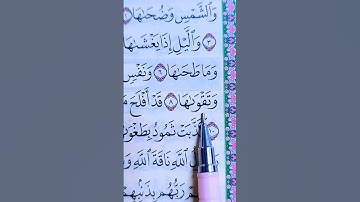 وَالشَّمْسِ وَضُحَىٰهَا ١
٣ وَالَّيْلِ إِذَا يَغْشَىٰهَا
وَمَا طَحَىٰهَا ٦ وَنَفْسٍ
وَتَقْوَىٰهَا ٨ قَدْ أَفْلَحَ مَ
كَذَّبَتْ ثَمُودُ بِطَغْوَىٰ
اللَّهِ نَاقَةَ اللَّهِ وَ
رَبُّهُم بِذَنۢبِهِمْ